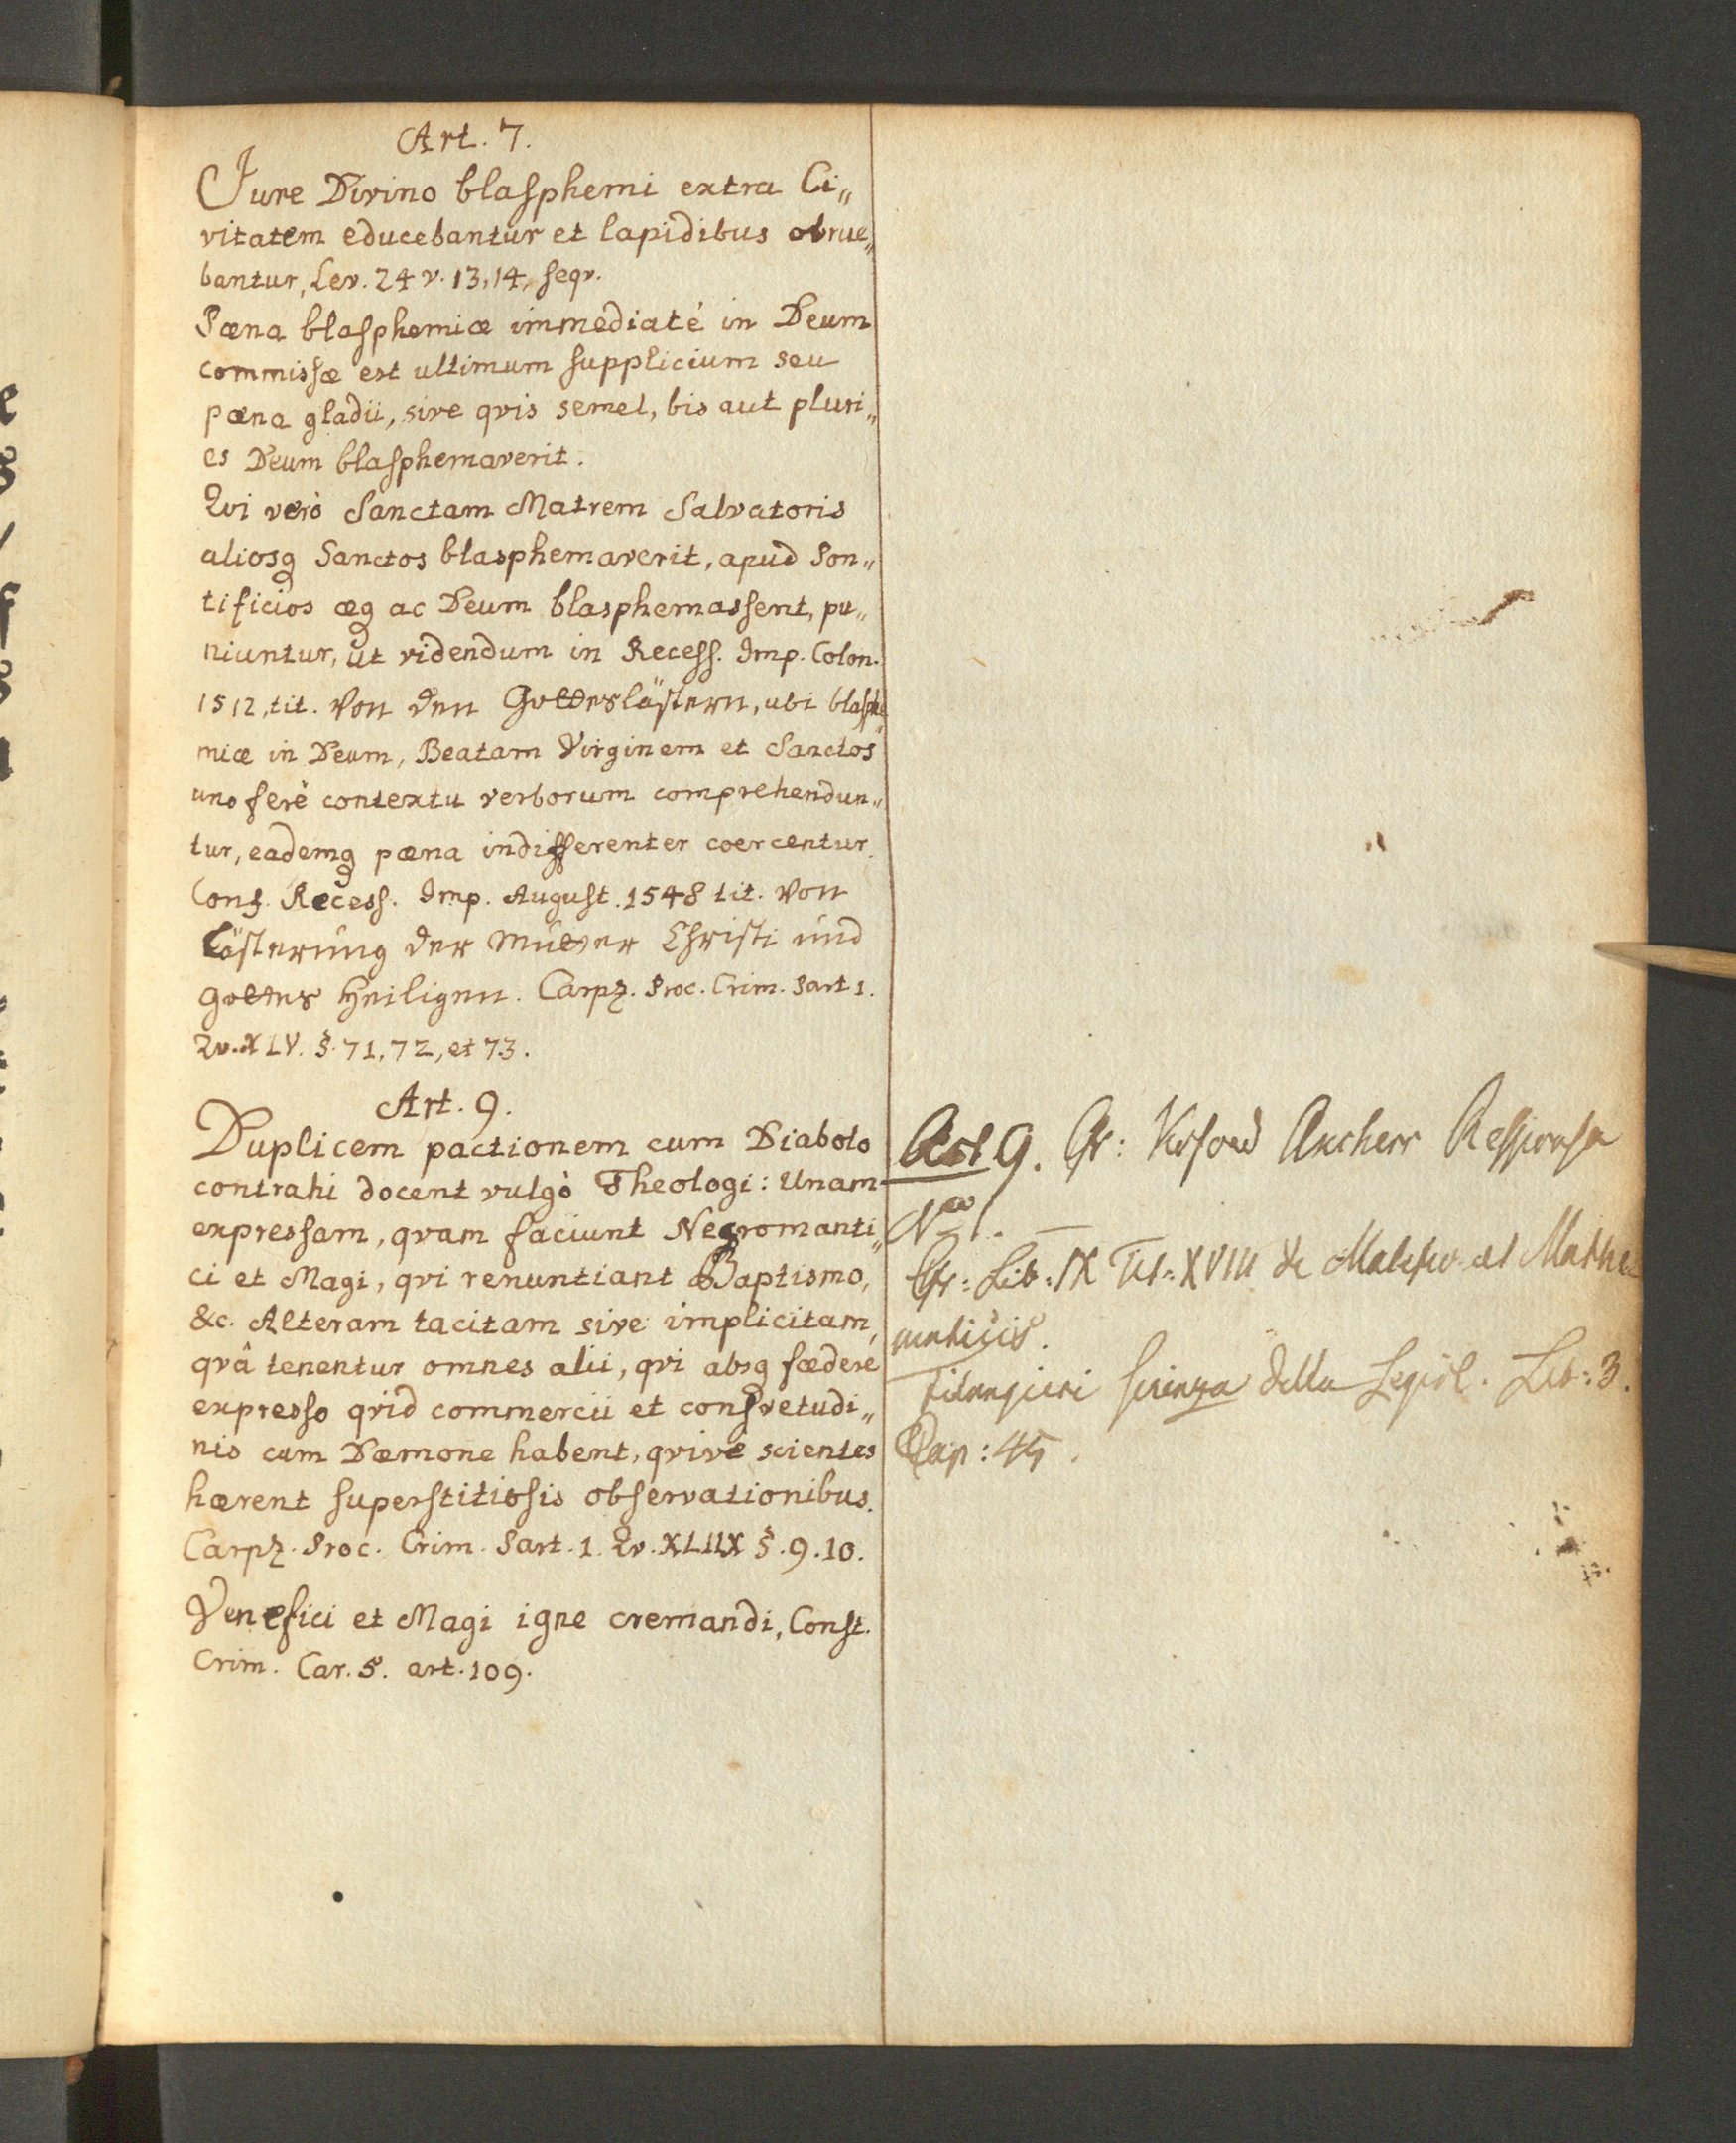 Art. 7.
Jure Divino blasphemi extra Ci„
vitatem educebantur et lapidibus obrue„
bantur, Lev. 24 v. 13, 14, seqv.
Pæna blasphemiæ immediaté in Deum
commissæ est ultimum supplicium seu
pæna gladii, sive qvis semel, bis aut pluri„
es Deum blasphemaverit.
Qvi verò Sanctam Matrem Salvatoris
aliosq Sanctos blasphemaverit, apud Pon„
tificios æq ac Deum blasphemassent, pu„
niuntur, ut videndum in Recess. Imp. Colon.
1512, tit. Von den Gotteslästern, ubi blasphe„
miæ in Deum, Beatam Virginem et Sanctos
uno ferè contextu verborum comprehendun„
tur, eademq pæna indifferenter coercentur.
Conf. Recess. Imp. August. 1548 tit. Von
Lästerung der Mutter Christi und
Gottes Heiligen. Carpz. Proc. Crim. Part 1.
Qv. XLV. §. 71, 72, et 73.
Art. 9.
Duplicem pactionem cum Diabolo
contrahi docent vulgò Theologi: Unam
expressam, qvam faciunt Negromanti„
ci et Magi, qvi renuntiant Baptismo,
&c. Alteram tacitam sive implicitam,
qvâ tenentur omnes alii, qvi absq fœdere
expresso qvid commercii et consvetudi„
nis cum Dæmone habent, qvive scientes
hærent superstitiosis observationibus.
Carpz. Proc. Crim. Part. 1. Qv. XLIIX §. 9. 10.
Venefici et Magi igne cremandi, Const.
Crim. Car. 5. art. 109.
Art 9. Cfr: Ancherr Responsa
No 1.
Cfr: Lib: IX Tit: XVIII de Malefic. et Mathe
maticis.
Filangieri scienza della Legisl. Lib: 3.
Cap: 45.